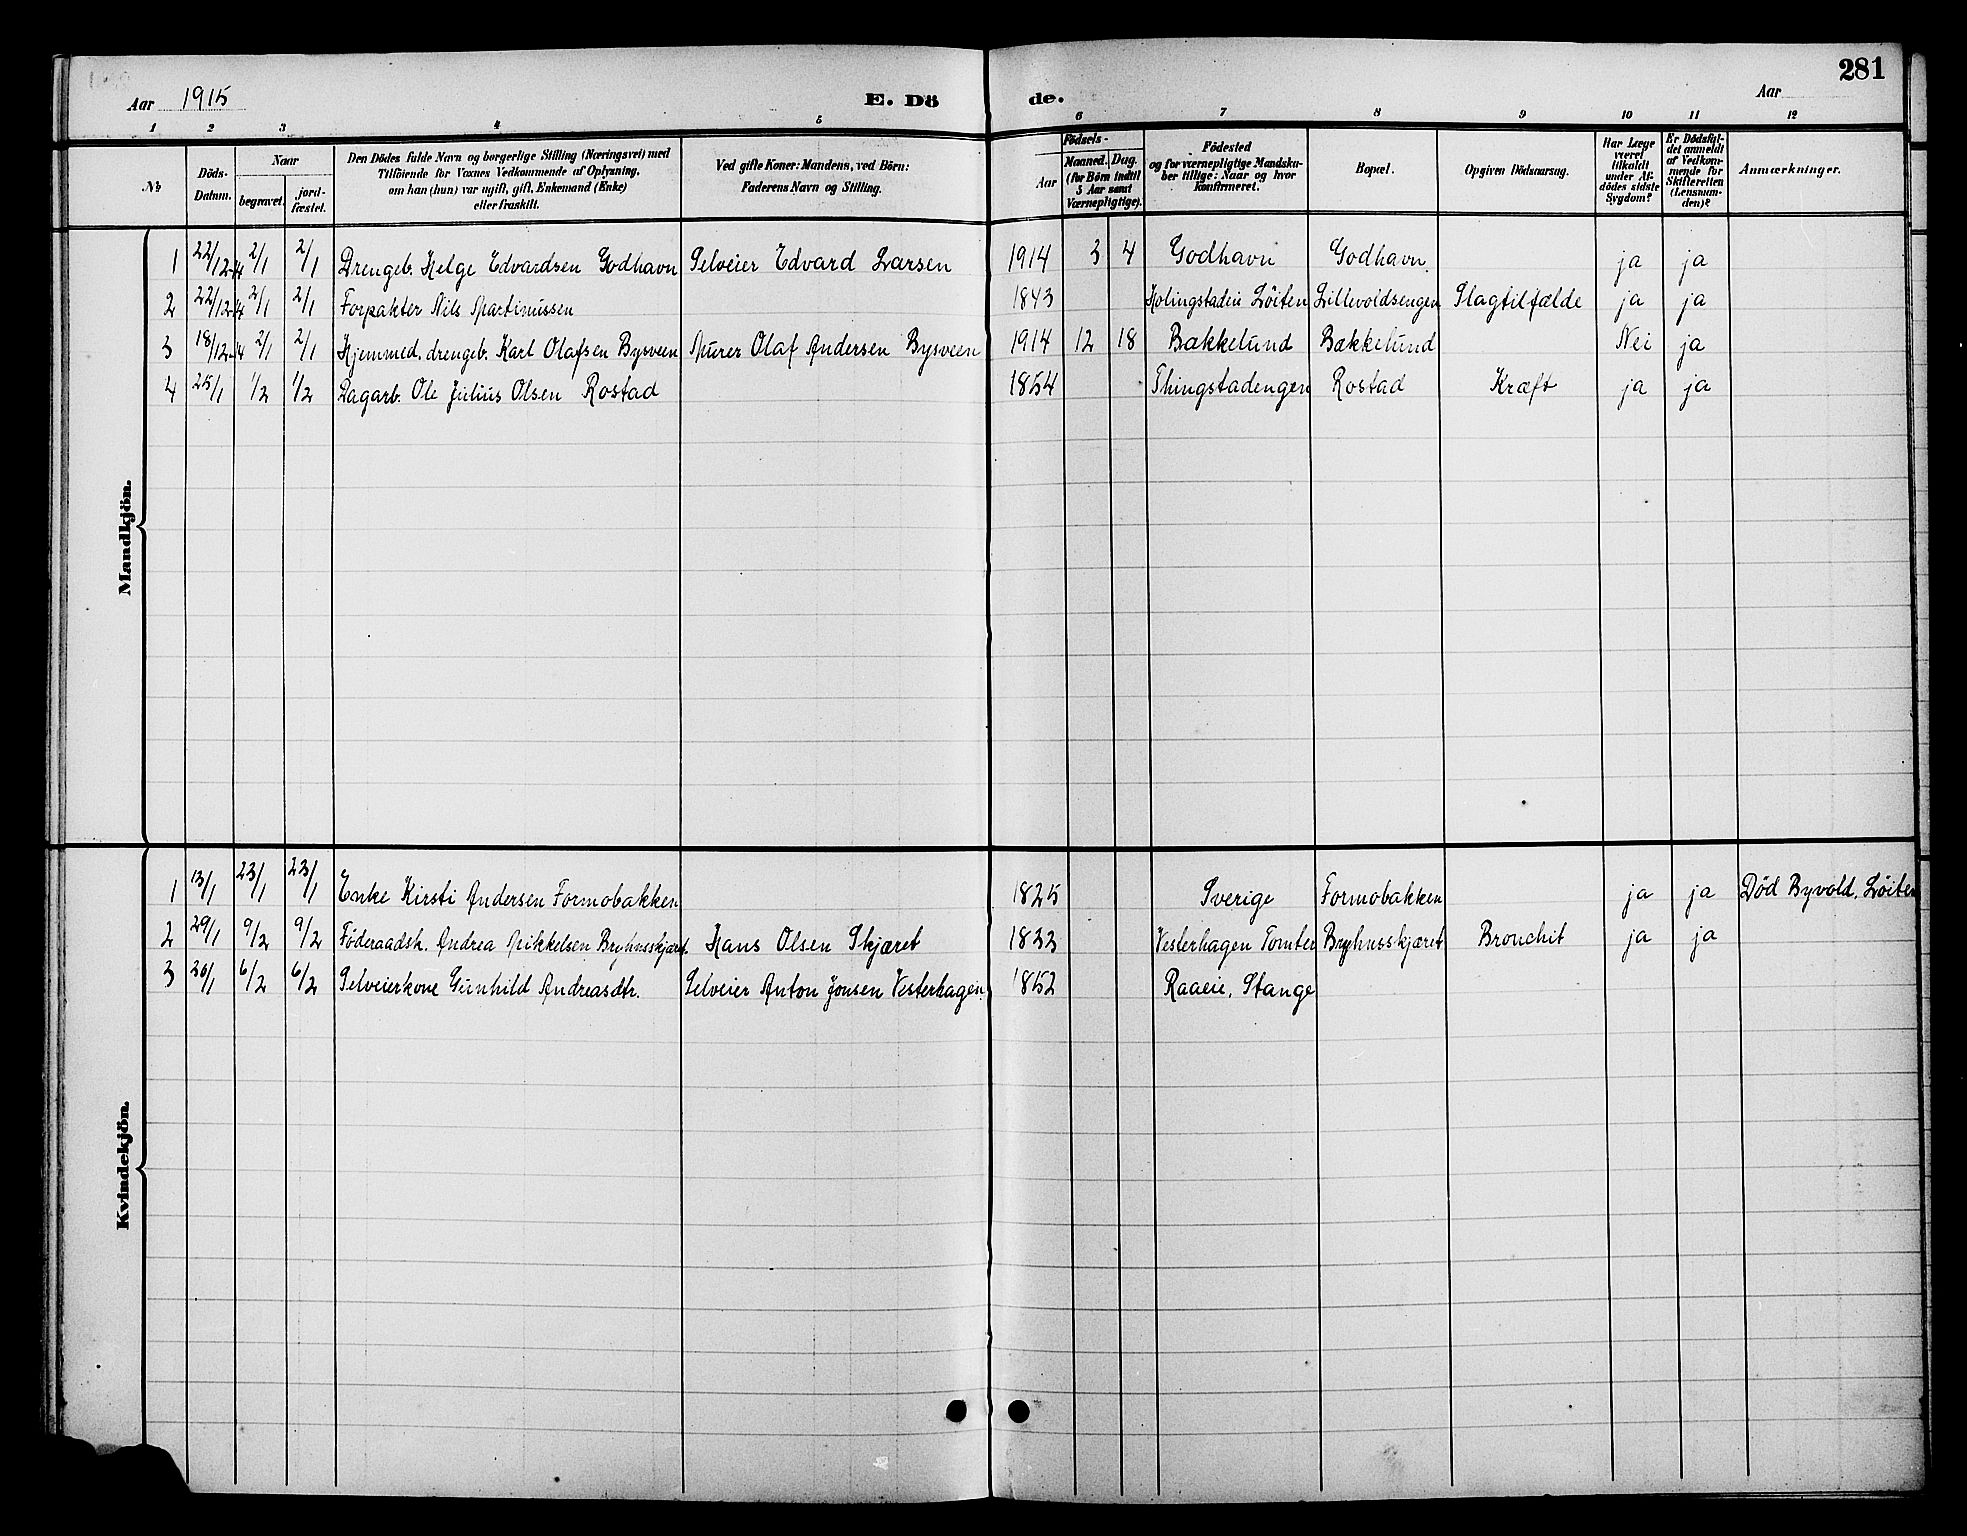 281
Aar 1915 E. Dö de. Aar
1 2 3 4 5 6 7 8 9 10 11 12
№ Döds-Datum. Naar begravet. jord-fæstet. Den Dödes fulde Navn og borgerlige Stilling (Næringsvei) med Tilföiende for Voxnes Vedkommende af Oplysning, om han (hun) var ugift, gift, Enkemand (Enke) eller fraskilt. Ved gifte Koner: Mandens, ved Börn: Faderens Navn og Stilling. Födsels- Aar Maaned. Dag. (for Börn indtil 5 Aar samt Værnepligtige). Födested og for værnepligtige Mandskaber tillige: Naar og hvor konfirmeret. Bopæl. Opgiven Dödsaarsag. Har Læge været tilkaldt under Afdödes sidste Sygdom? Er Dödsfaldet anmeldt af Vedkommende for Skifteretten (Lensmanden)? Anmærkninger.
Mandkjön.
1 22/12-14 2/1 2/1 Drengeb. Helge Edvardsen Godhavn Selveier Edvard Larsen 1914 3 4 Godhavn Godhavn ja ja
2 22/12-14 2/1 2/1 Forpakter Nils Martinussen 1843 Løiten Lillevoldsengen Slagtilfælde ja ja
3 18/12-14 2/1 2/1 Hjemmed. drengeb. Karl Olafsen Bysveen Murer Olaf Andersen Bysveen 1914 12 18 Bækkelund Bækkelund Nei ja
4 25/1 1/2 1/2 Dagarb. Ole Julius Olsen Rostad 1854 Thingstadengen Rostad Kræft ja ja
Kvindekjön.
1 13/1 23/1 23/1 Enke Kirsti Andersen Formobakken 1825 Sverige Formobakken ja ja Død Byvold, Løiten
2 29/1 9/2 9/2 Føderaadsk. Andrea Mikkelsen Bryhnsskjæret. Hans Olsen Skjæret 1833 Vesterhagen Tomter Bryhnsskjæret Bronchit ja ja
3 26/1 6/2 6/2 Selveierkone Gunhild Andreasdtr. Selveier Anton Jonsen Vesterhagen. 1852 Raaeie, Stange